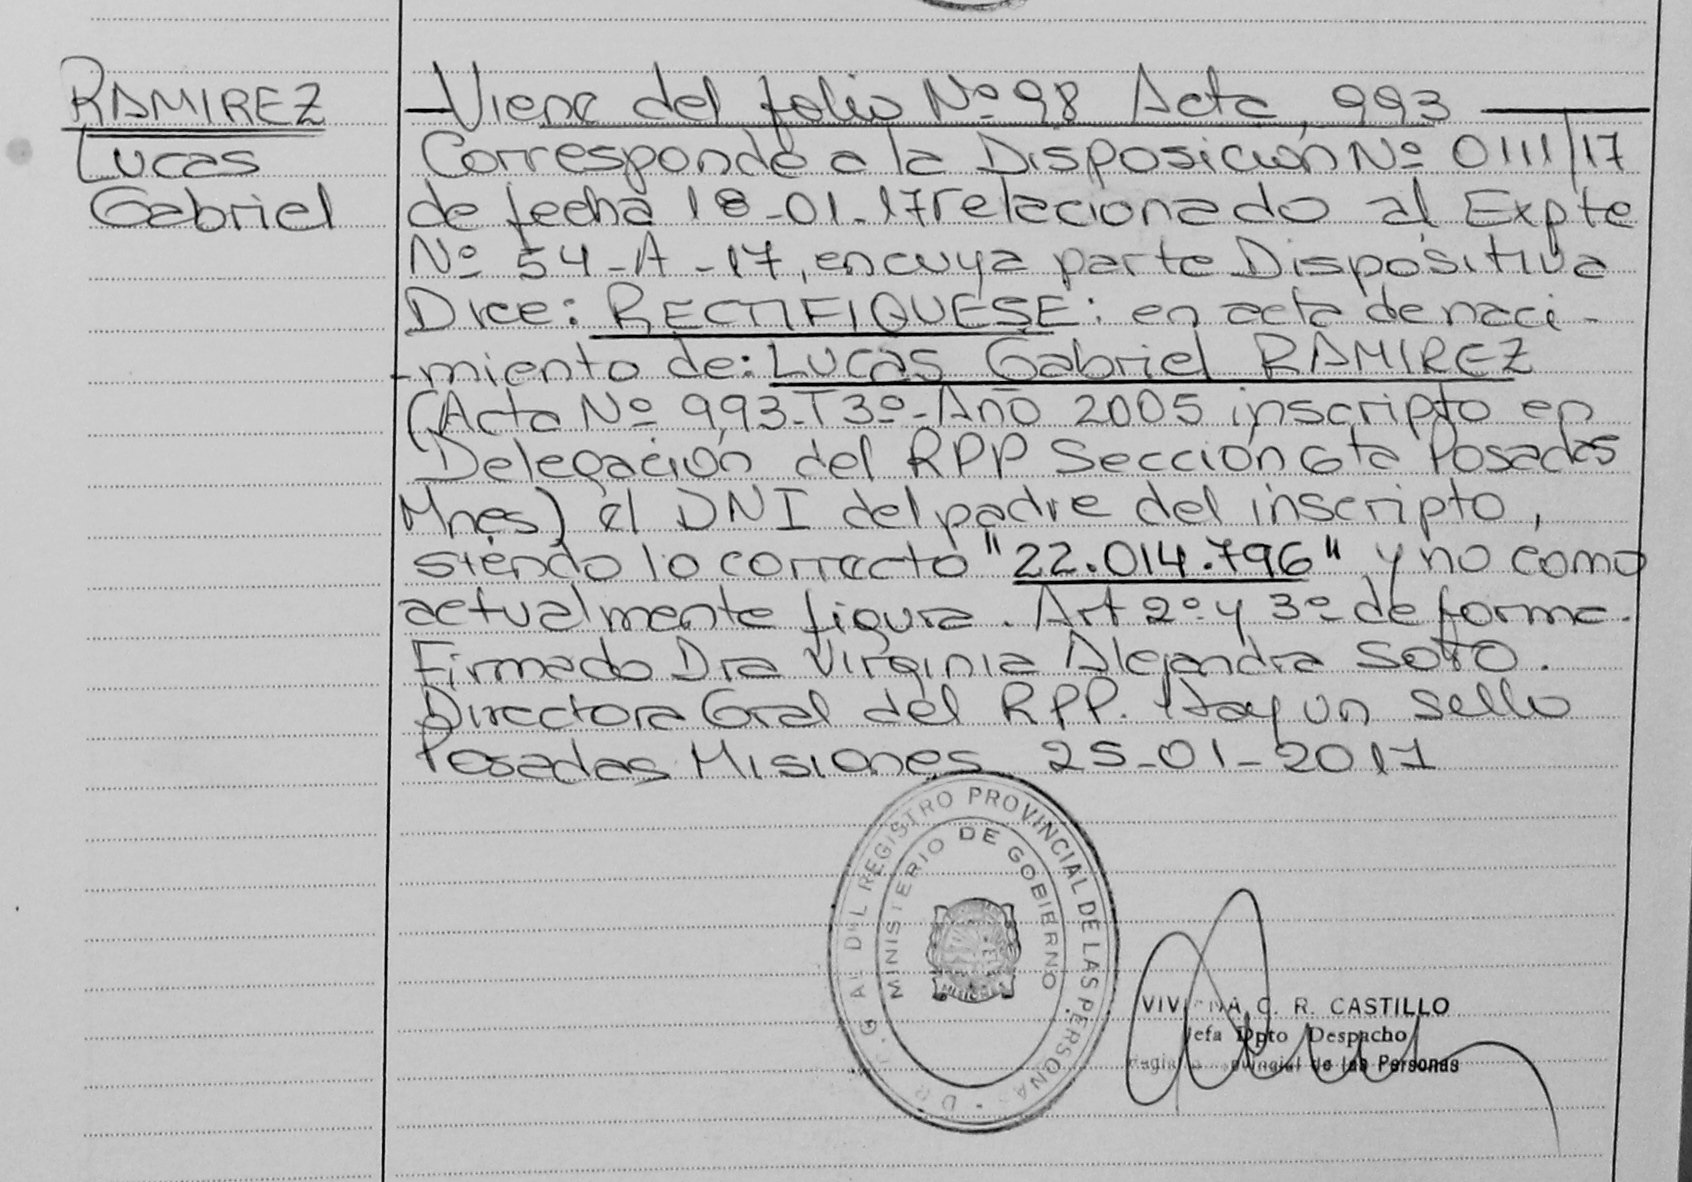 RAMIREZ
Lucas
Gabriel
—Viene del folio Nº 98 Acta, 993—
Corresponde a la Disposición Nº 0111/17
de fecha 18-01-17 relacionado al Expte
Nº 54-A-17, en cuya parte Dispositiva
Dice: RECTIFIQUESE: en acta de naci-
-miento de: Lucas Gabriel RAMIREZ
(Acta Nº 993-T3º-Año 2005 inscripto en
Delegación del RPP Sección 6ta Posadas
Mnes) el DNI del padre del inscripto,
siendo lo correcto "22.014.796" y no como
actualmente figura. Art 2º y 3º de forma.
Firmado Dra Virginia Alejandra SOTO.
Directora Gral del RPP. Hay un sello
Posadas Misiones 25-01-2017
REGISTRO PROVINCIAL DE LAS PERSONAS
MINISTERIO DE GOBIERNO
MISIONES
VIVIANA C. R. CASTILLO
Jefa Dpto Despacho
de las Personas